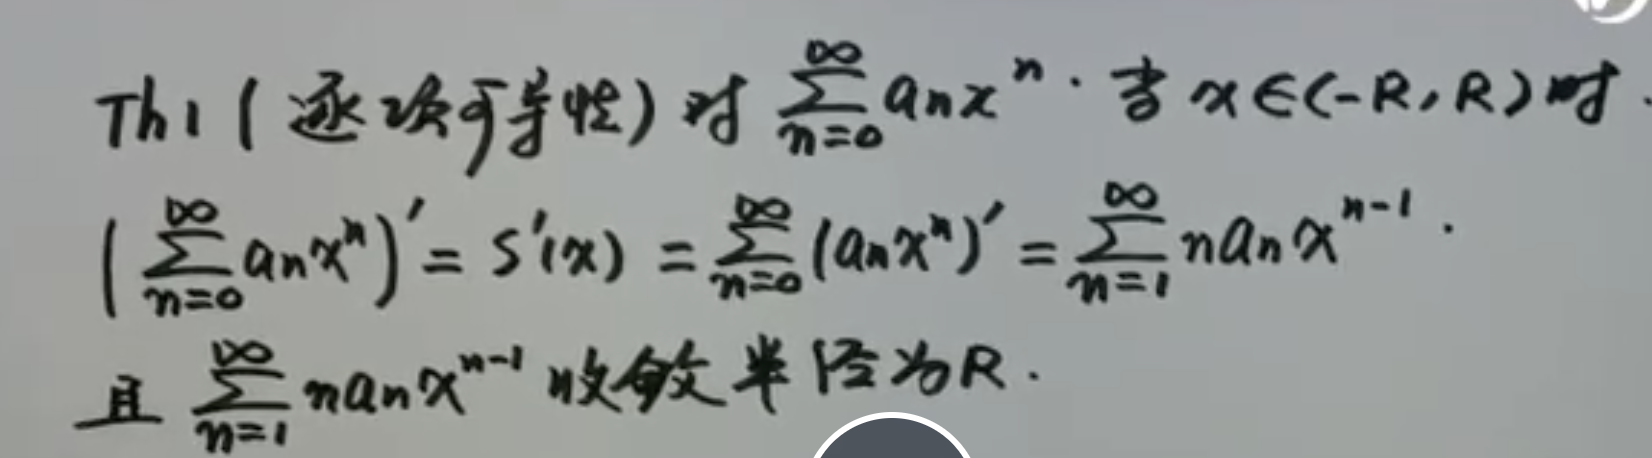 Th1 (逐项可导性) 对 $\sum_{n=0}^{\infty} a_n x^n$. 当 $x \in (-R, R)$ 时.
$\left(\sum_{n=0}^{\infty} a_n x^n\right)' = S'(x) = \sum_{n=0}^{\infty} (a_n x^n)' = \sum_{n=1}^{\infty} n a_n x^{n-1}$.
且 $\sum_{n=1}^{\infty} n a_n x^{n-1}$ 收敛半径为R.